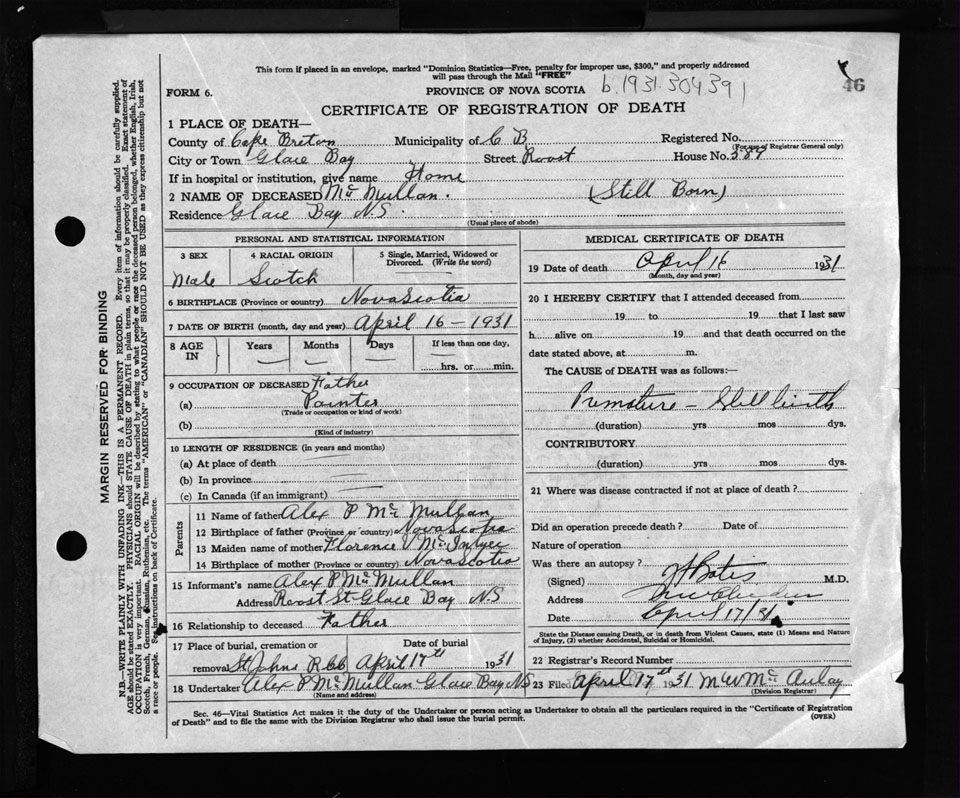 This form if placed in an envelope, marked "Dominion Statistics—Free, penalty for improper use, $300," and properly addressed
will pass through the Mail "FREE"
46
FORM 6.
PROVINCE OF NOVA SCOTIA
b.1931.304391
CERTIFICATE OF REGISTRATION OF DEATH
1 PLACE OF DEATH—
County of Cape Breton Municipality of C B Registered No.
(For use of Registrar General only)
City or Town Glace Bay Street Roost House No. 389
If in hospital or institution, give name Home
2 NAME OF DECEASED Mc Mullan. (Still Born)
Residence Glace Bay N.S.
(Usual place of abode)
PERSONAL AND STATISTICAL INFORMATION
3 SEX
4 RACIAL ORIGIN
5 Single, Married, Widowed or Divorced. (Write the word)
Male Scotch
6 BIRTHPLACE (Province or country) Nova Scotia
7 DATE OF BIRTH (month, day and year) April 16 – 1931
8 AGE IN Years Months Days If less than one day,
hrs. or min.
9 OCCUPATION OF DECEASED Father
(a) Painter
(Trade or occupation or kind of work)
(b)
(Kind of industry)
10 LENGTH OF RESIDENCE (in years and months)
(a) At place of death
(b) In province
(c) In Canada (if an immigrant)
Parents
11 Name of father Alex P Mc Mullan
12 Birthplace of father (Province or country) Nova Scotia
13 Maiden name of mother Florence
14 Birthplace of mother (Province or country) Nova Scotia
15 Informant's name Alex P Mc Mullan
Address Roost St Glace Bay NS
16 Relationship to deceased Father
17 Place of burial, cremation or Date of burial
removal St Johns April 17th 1931
18 Undertaker Alex P Mc Mullan Glace Bay NS
(Name and address)
MEDICAL CERTIFICATE OF DEATH
19 Date of death April 16 1931
(Month, day and year)
20 I HEREBY CERTIFY that I attended deceased from
19 to 19 that I last saw
h alive on 19 and that death occurred on
date stated above, at m.
The CAUSE of DEATH was as follows:—
Premature – Still birth
(duration) yrs mos dys.
CONTRIBUTORY
(duration) yrs mos dys.
21 Where was disease contracted if not at place of death?
Did an operation precede death? Date of
Nature of operation
Was there an autopsy?
(Signed) Bates M.D.
Address
Date April 17/31
State the Disease causing Death, or in death from Violent Causes, state (1) Means and Nature
of Injury, (2) whether Accidental, Suicidal or Homicidal.
22 Registrar's Record Number
23 Filed April 17th 1931 M W Mc Aulay
(Division Registrar)
Sec. 46—Vital Statistics Act makes it the duty of the Undertaker or person acting as Undertaker to obtain all the particulars required in the "Certificate of Registration
of Death" and to file the same with the Division Registrar who shall issue the burial permit.
(OVER)
MARGIN RESERVED FOR BINDING
N.B.—WRITE PLAINLY WITH UNFADING INK—THIS IS A PERMANENT RECORD. Every item of information should be carefully supplied.
AGE should be stated EXACTLY. PHYSICIANS should STATE CAUSE OF DEATH in plain terms, so that it may be properly classified. Exact statement of
OCCUPATION is very important. RACIAL ORIGIN will be described by stating to what people or race the deceased person belonged, whether English, Irish,
Scotch, French, German, Russian, Ruthenian, etc. The terms "AMERICAN" or "CANADIAN" SHOULD NOT BE USED as they express citizenship but not
a race or people. See instructions on back of Certificate.